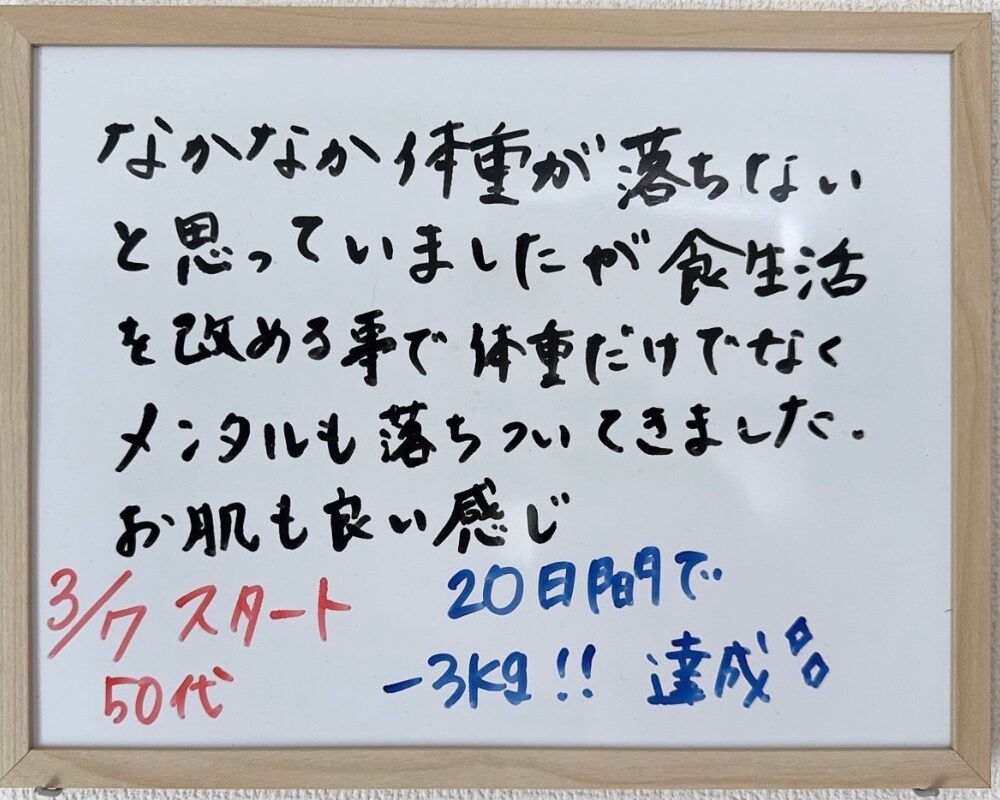 なかなか体重が落ちない
と思っていましたが食生活
を改める事で体重だけでなく
メンタルも落ちついてきました.
お肌も良い感じ
3/7 スタート
50代
20日間で
-3kg!! 達成